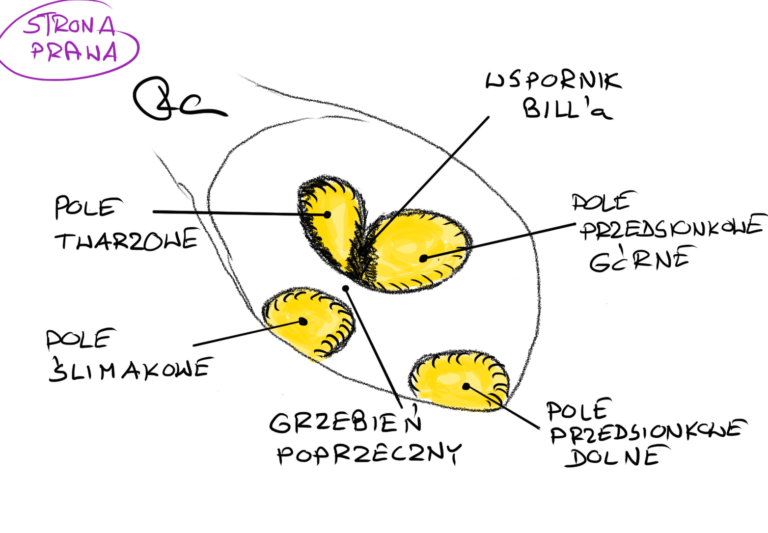 STRONA
PRAWA
WSPORNIK
BILL'a
POLE
TWARZOWE
POLE
PRZEDSIONKOWE
GÓRNE
POLE
ŚLIMAKOWE
GRZEBIEŃ
POPRZECZNY
POLE
PRZEDSIONKOWE
DOLNE